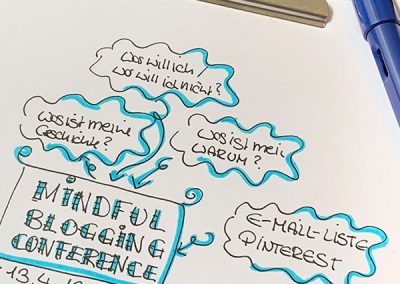 Was will ich/
wo will ich nicht?
Was ist meine
Geschichte?
Was ist mein
WARUM?
MINDFUL
BLOGGING
CONFERENCE
E-MAIL-LISTE
PINTEREST
-13.4.